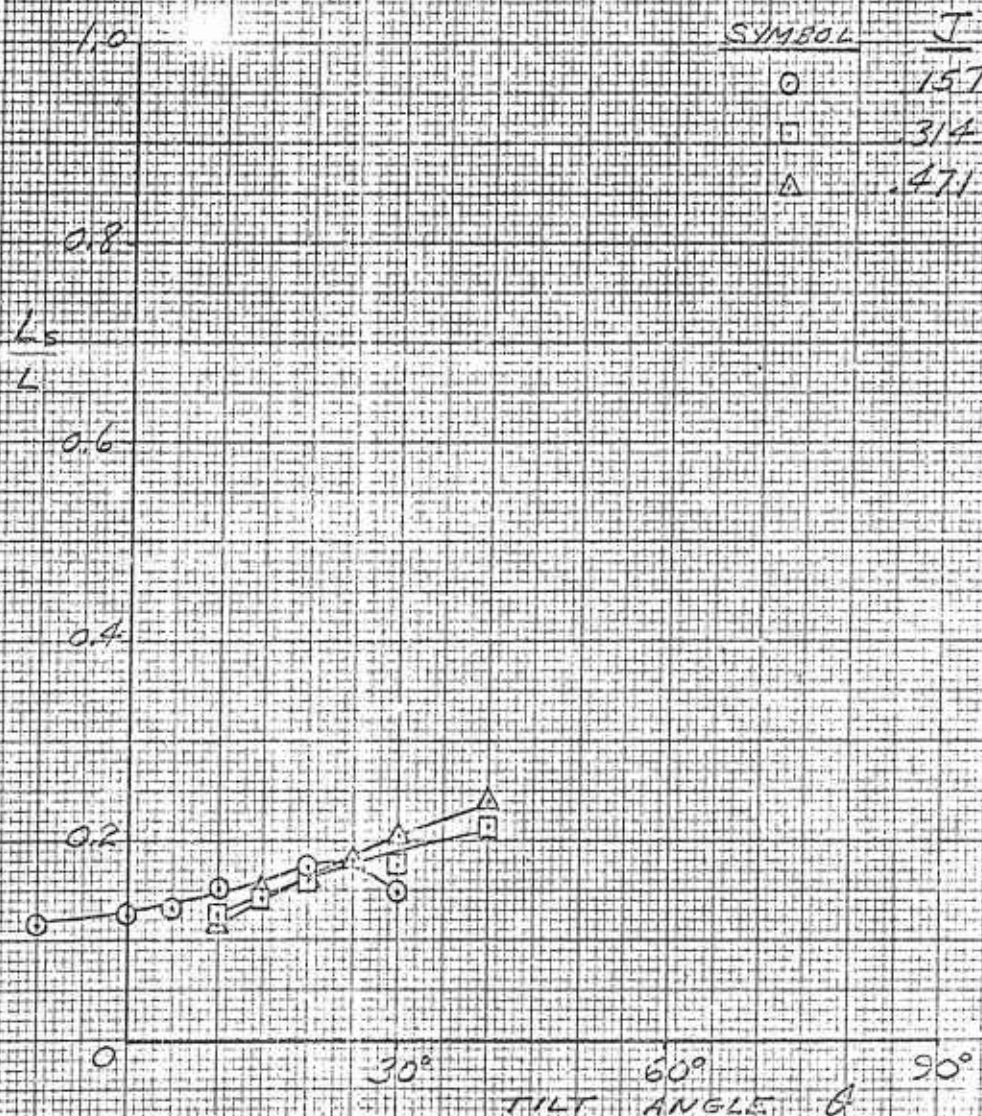 SYMBOL J
⊙ .157
□ .314
△ .471
1.0
0.8
Ls
L
0.6
0.4
0.2
0
30° 60° 90°
TILT ANGLE θ